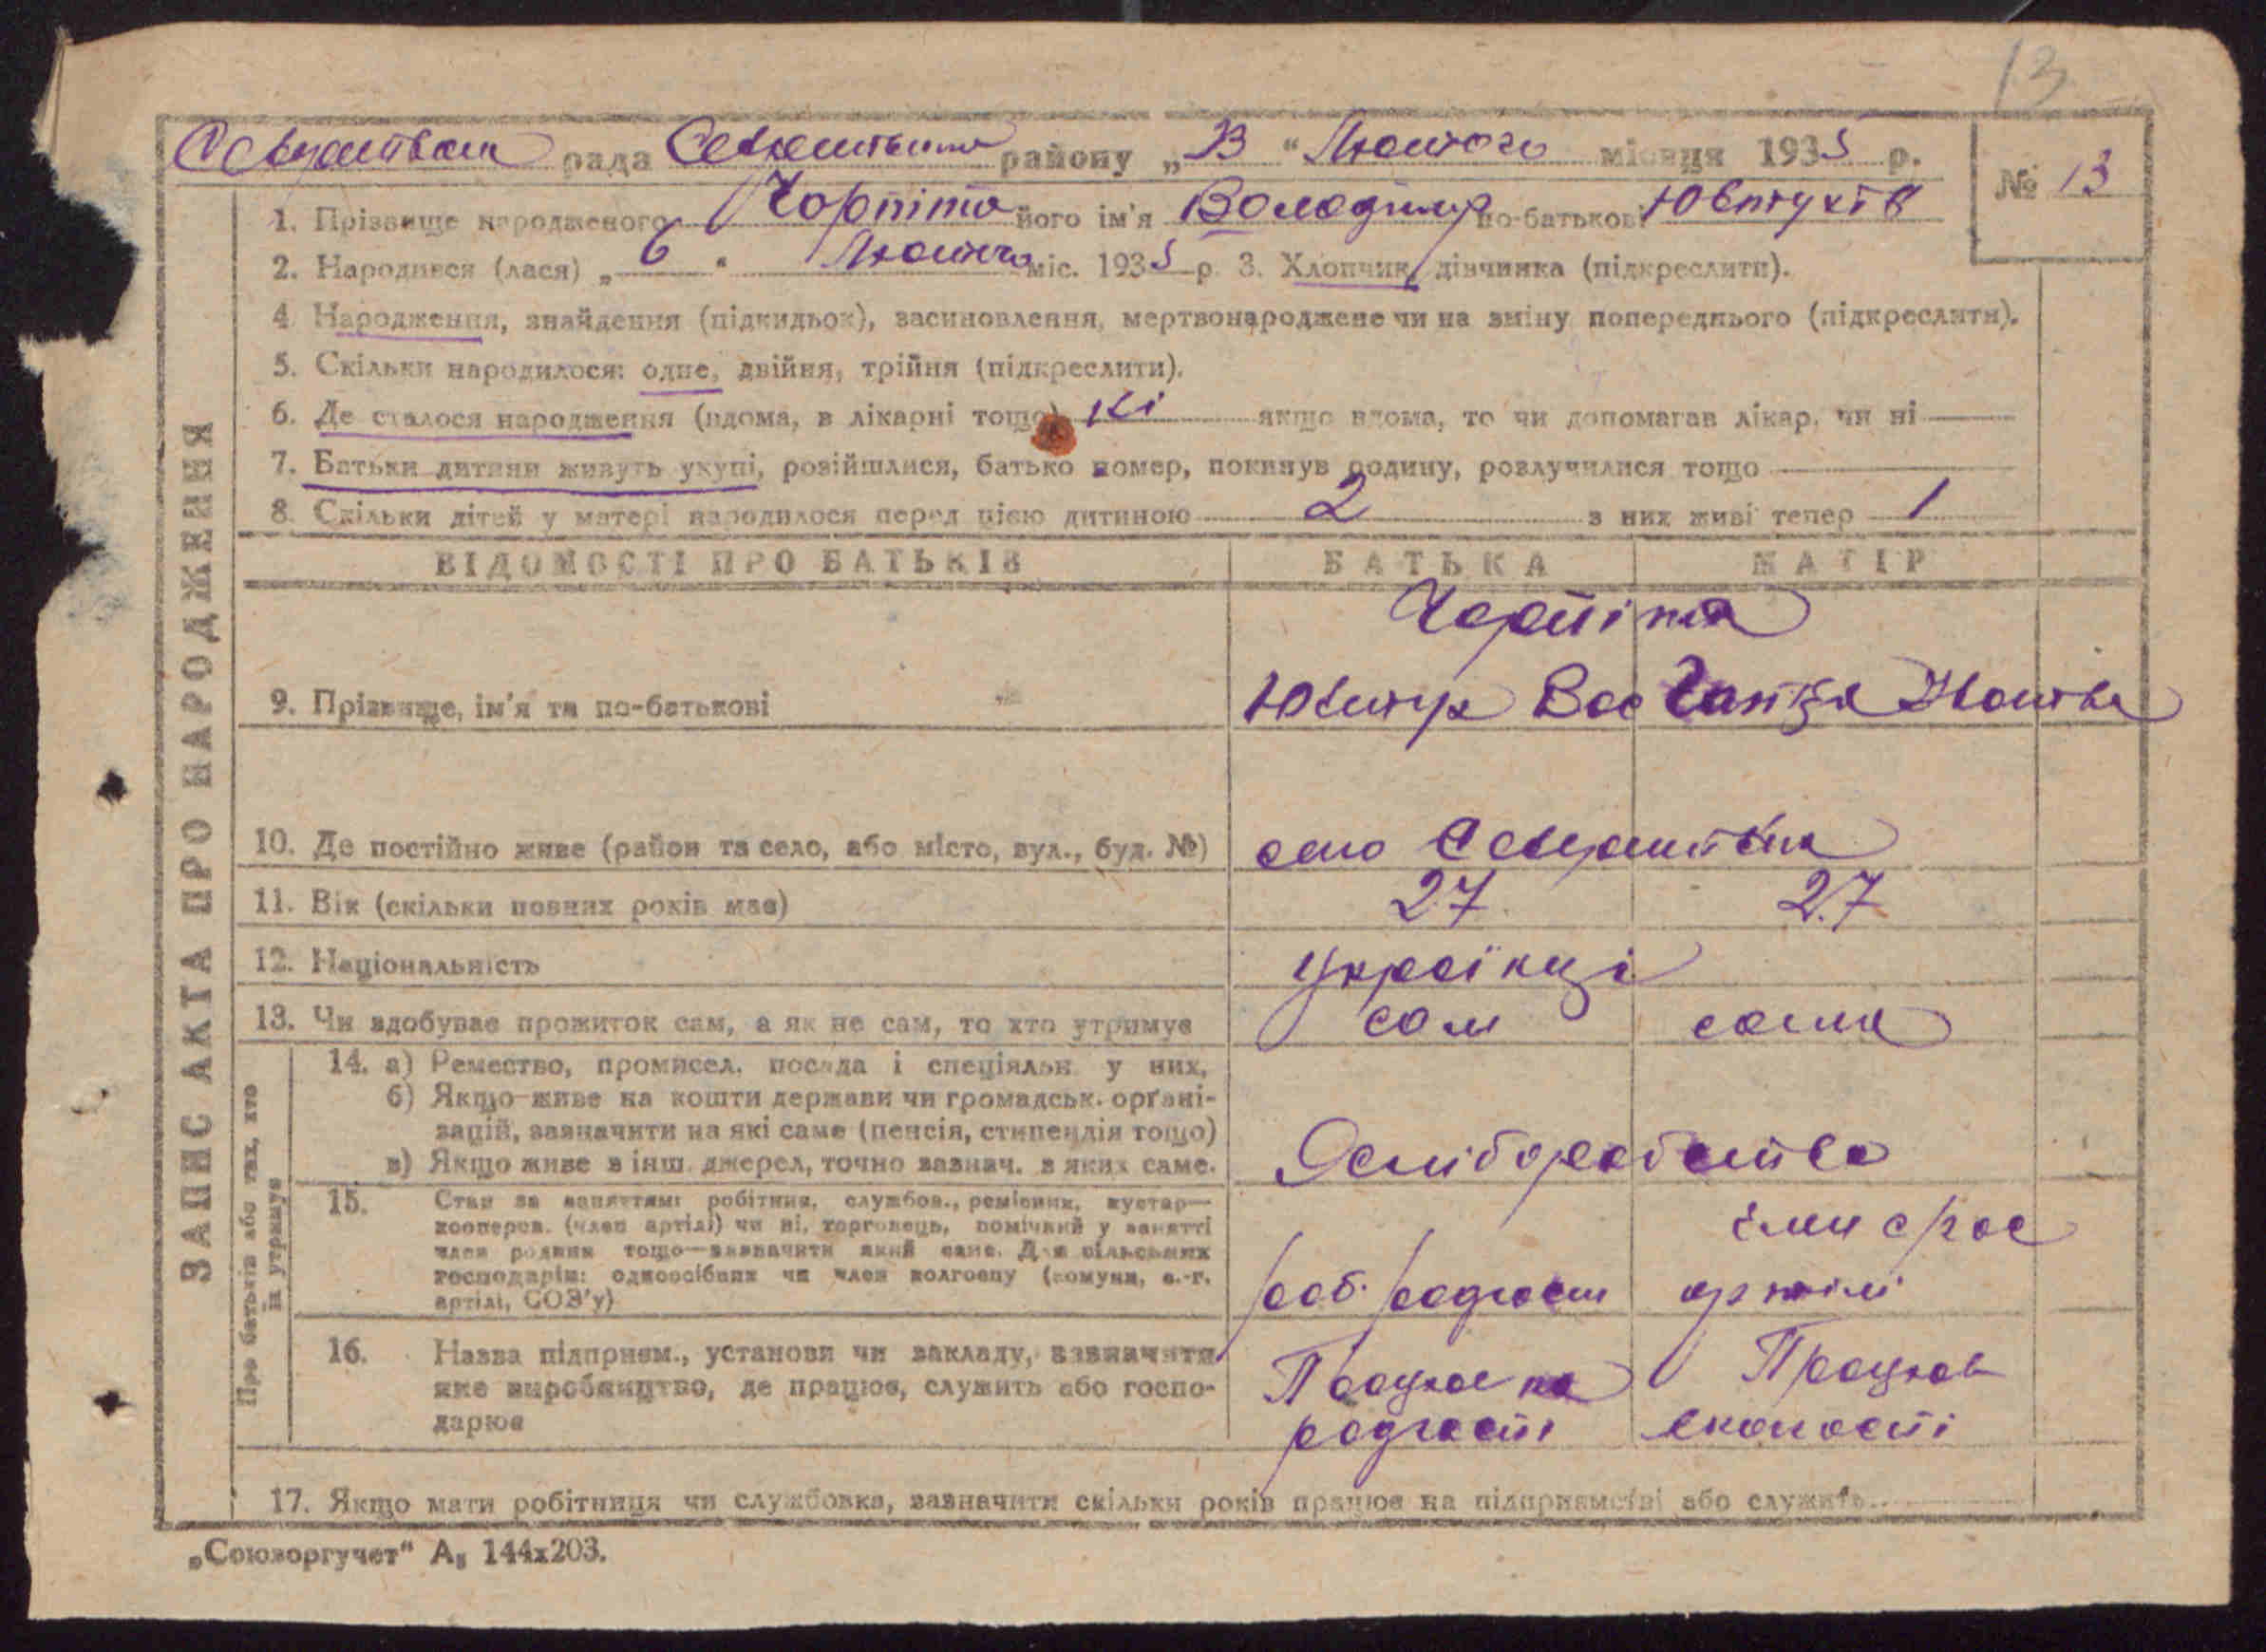 13
рада району „13 “ Лютого місяця 1935 р.
№ 13
1. Прізвище народженого Чорпіта його ім'я Володимир по-батькові Ювтухів
2. Народився (лася) „ 6 “ Лютого міс. 1935 р. 3. Хлопчик, дівчинка (підкреслити).
4. Народження, знайдення (підкидьок), засиновлення, мертвонароджене чи на зміну попереднього (підкреслити).
5. Скільки народилося: одне, двійня, трійня (підкреслити).
6. Де сталося народження (вдома, в лікарні тощо) якщо вдома, то чи допомагав лікар, чи ні
7. Батьки дитини живуть укупі, розійшлися, батько помер, покинув родину, розлучилися тощо
8. Скільки дітей у матері народилося перед цією дитиною 2 з них живі тепер 1
ВІДОМОСТІ ПРО БАТЬКІВ БАТЬКА МАТІР
Чорпіта
9. Прізвище, ім'я та по-батькові Ювтух Вас
10. Де постійно живе (район та село, або місто, вул., буд. №) село
11. Вік (скільки повних років має) 27 27
12. Національність Українці
13. Чи здобуває прожиток сам, а як не сам, то хто утримує сам сама
14. а) Ремество, промисел, посада і спеціяльн. у них,
б) Якщо живе на кошти держави чи громадськ. орґані-
зацій, зазначити на які саме (пенсія, стипендія тощо)
в) Якщо живе з інш. джерел, точно зазнач. з яких саме.
15. Стан за заняттям: робітник, службов., ремісник, кустар—
кооперов. (член артілі) чи ні, торговець, помічний у занятті
член родини тощо—зазначити який саме. Для сільських
господарів: одноосібник чи член колгоспу (комуни, с.-г.
артілі, СОЗ'у)
роб. радгосп артілі
16. Назва підприєм., установи чи закладу, зазначити
яке виробництво, де працює, служить або госпо-
дарює
Працює на Працює
радгоспі
17. Якщо мати робітниця чи службовка, зазначити скільки років працює на підприємстві або служить..
Про батьків або тих, хто
їх утримує
ЗАПИС АКТА ПРО НАРОДЖЕННЯ
„Союзоргучет“ А₅ 144х203.